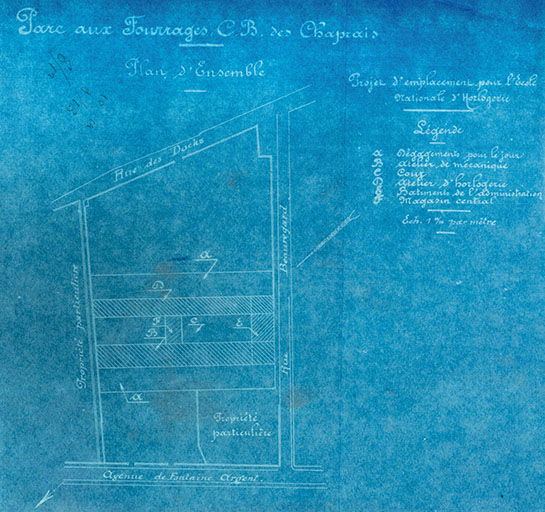 Parc aux Fourrages, C. B. des Chaprais
Plan d'Ensemble
Projet d'emplacement pour l'Ecole
Nationale d'Horlogerie
Légende
a Dégagements pour le jour
B Atelier de mécanique
C Cour
D Atelier d'horlogerie
E Batiments de l'administration
Magasin central
Ech. 1 m/m par mètre
Rue des Docks
Rue Beauregard
Propriété particulière
a
D
B
C
E
a
Propriété
particulière
Avenue de Fontaine Argent.